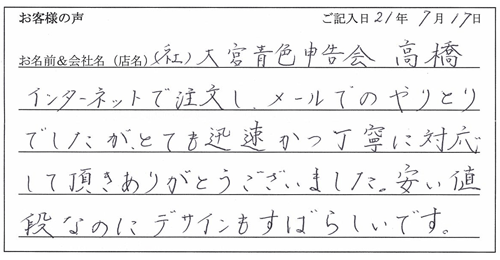 お客様の声 ご記入日 21年 7月 17日
お名前&会社名(店名) (社) 大宮青色申告会 高橋
インターネットで注文し、メールでのやりとり
でしたが、とても迅速かつ丁寧に対応
して頂きありがとうございました。安い値
段なのにデザインもすばらしいです。